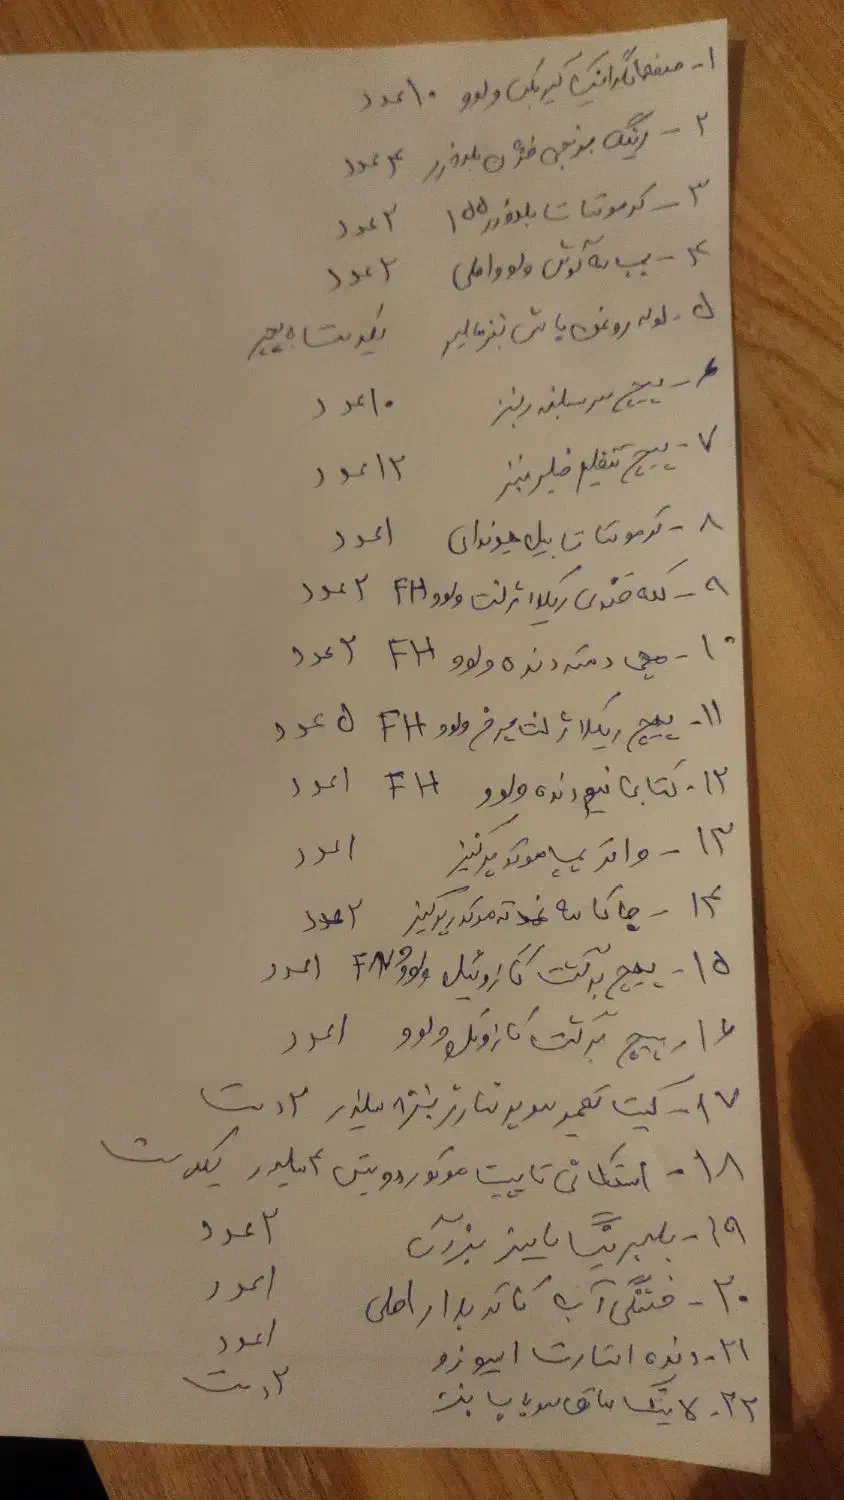 ۱- صفحه گرافیک گیربکس ولوو ۱۰ عدد
۲- رینگ برنجی لودر ۴ عدد
۳- کرموتات بلدوزر ۱۵۵ ۲ عدد
۴- پمپ سه گوش ولوو اصلی ۲ عدد
۵- لوله روغن پاش بنز مایلر یکدست با پیچ
۶- پیچ سر سیلندر بنز ۱۰ عدد
۷- پیچ فلایر بنز ۱۲ عدد
۸- کرموتات بیل هیوندای ۱ عدد
۹- کله قندی ریگلاژ لنت ولوو FH ۲ عدد
۱۰- مچی دسته دنده ولوو FH ۲ عدد
۱۱- پیچ ریگلاژ لنت چرخ ولوو FH ۵ عدد
۱۲- کتابی نیم دنده ولوو FH ۱ عدد
۱۳- واتر پمپ موتور پرکینز ۱ عدد
۱۴- موتور پرکینز ۲ عدد
۱۵- پیچ برگشت گازوئیل ولوو ۱ عدد
۱۶- پیچ برگشت گازوئیل ولوو ۱ عدد
۱۷- کیت تعمیر سوپر شارژ بنز ۸ سیلندر ۲ دست
۱۸- استکانی تایپیت موتور دویتس ۴ سیلندر یکدست
۱۹- بلبرینگ ۲ عدد
۲۰- آب کاتر پیلار اصلی ۱ عدد
۲۱- دنده استارت ایسوزو ۱ عدد
۲۲- لاینگ ساق سوپاپ بنز ۲ دست